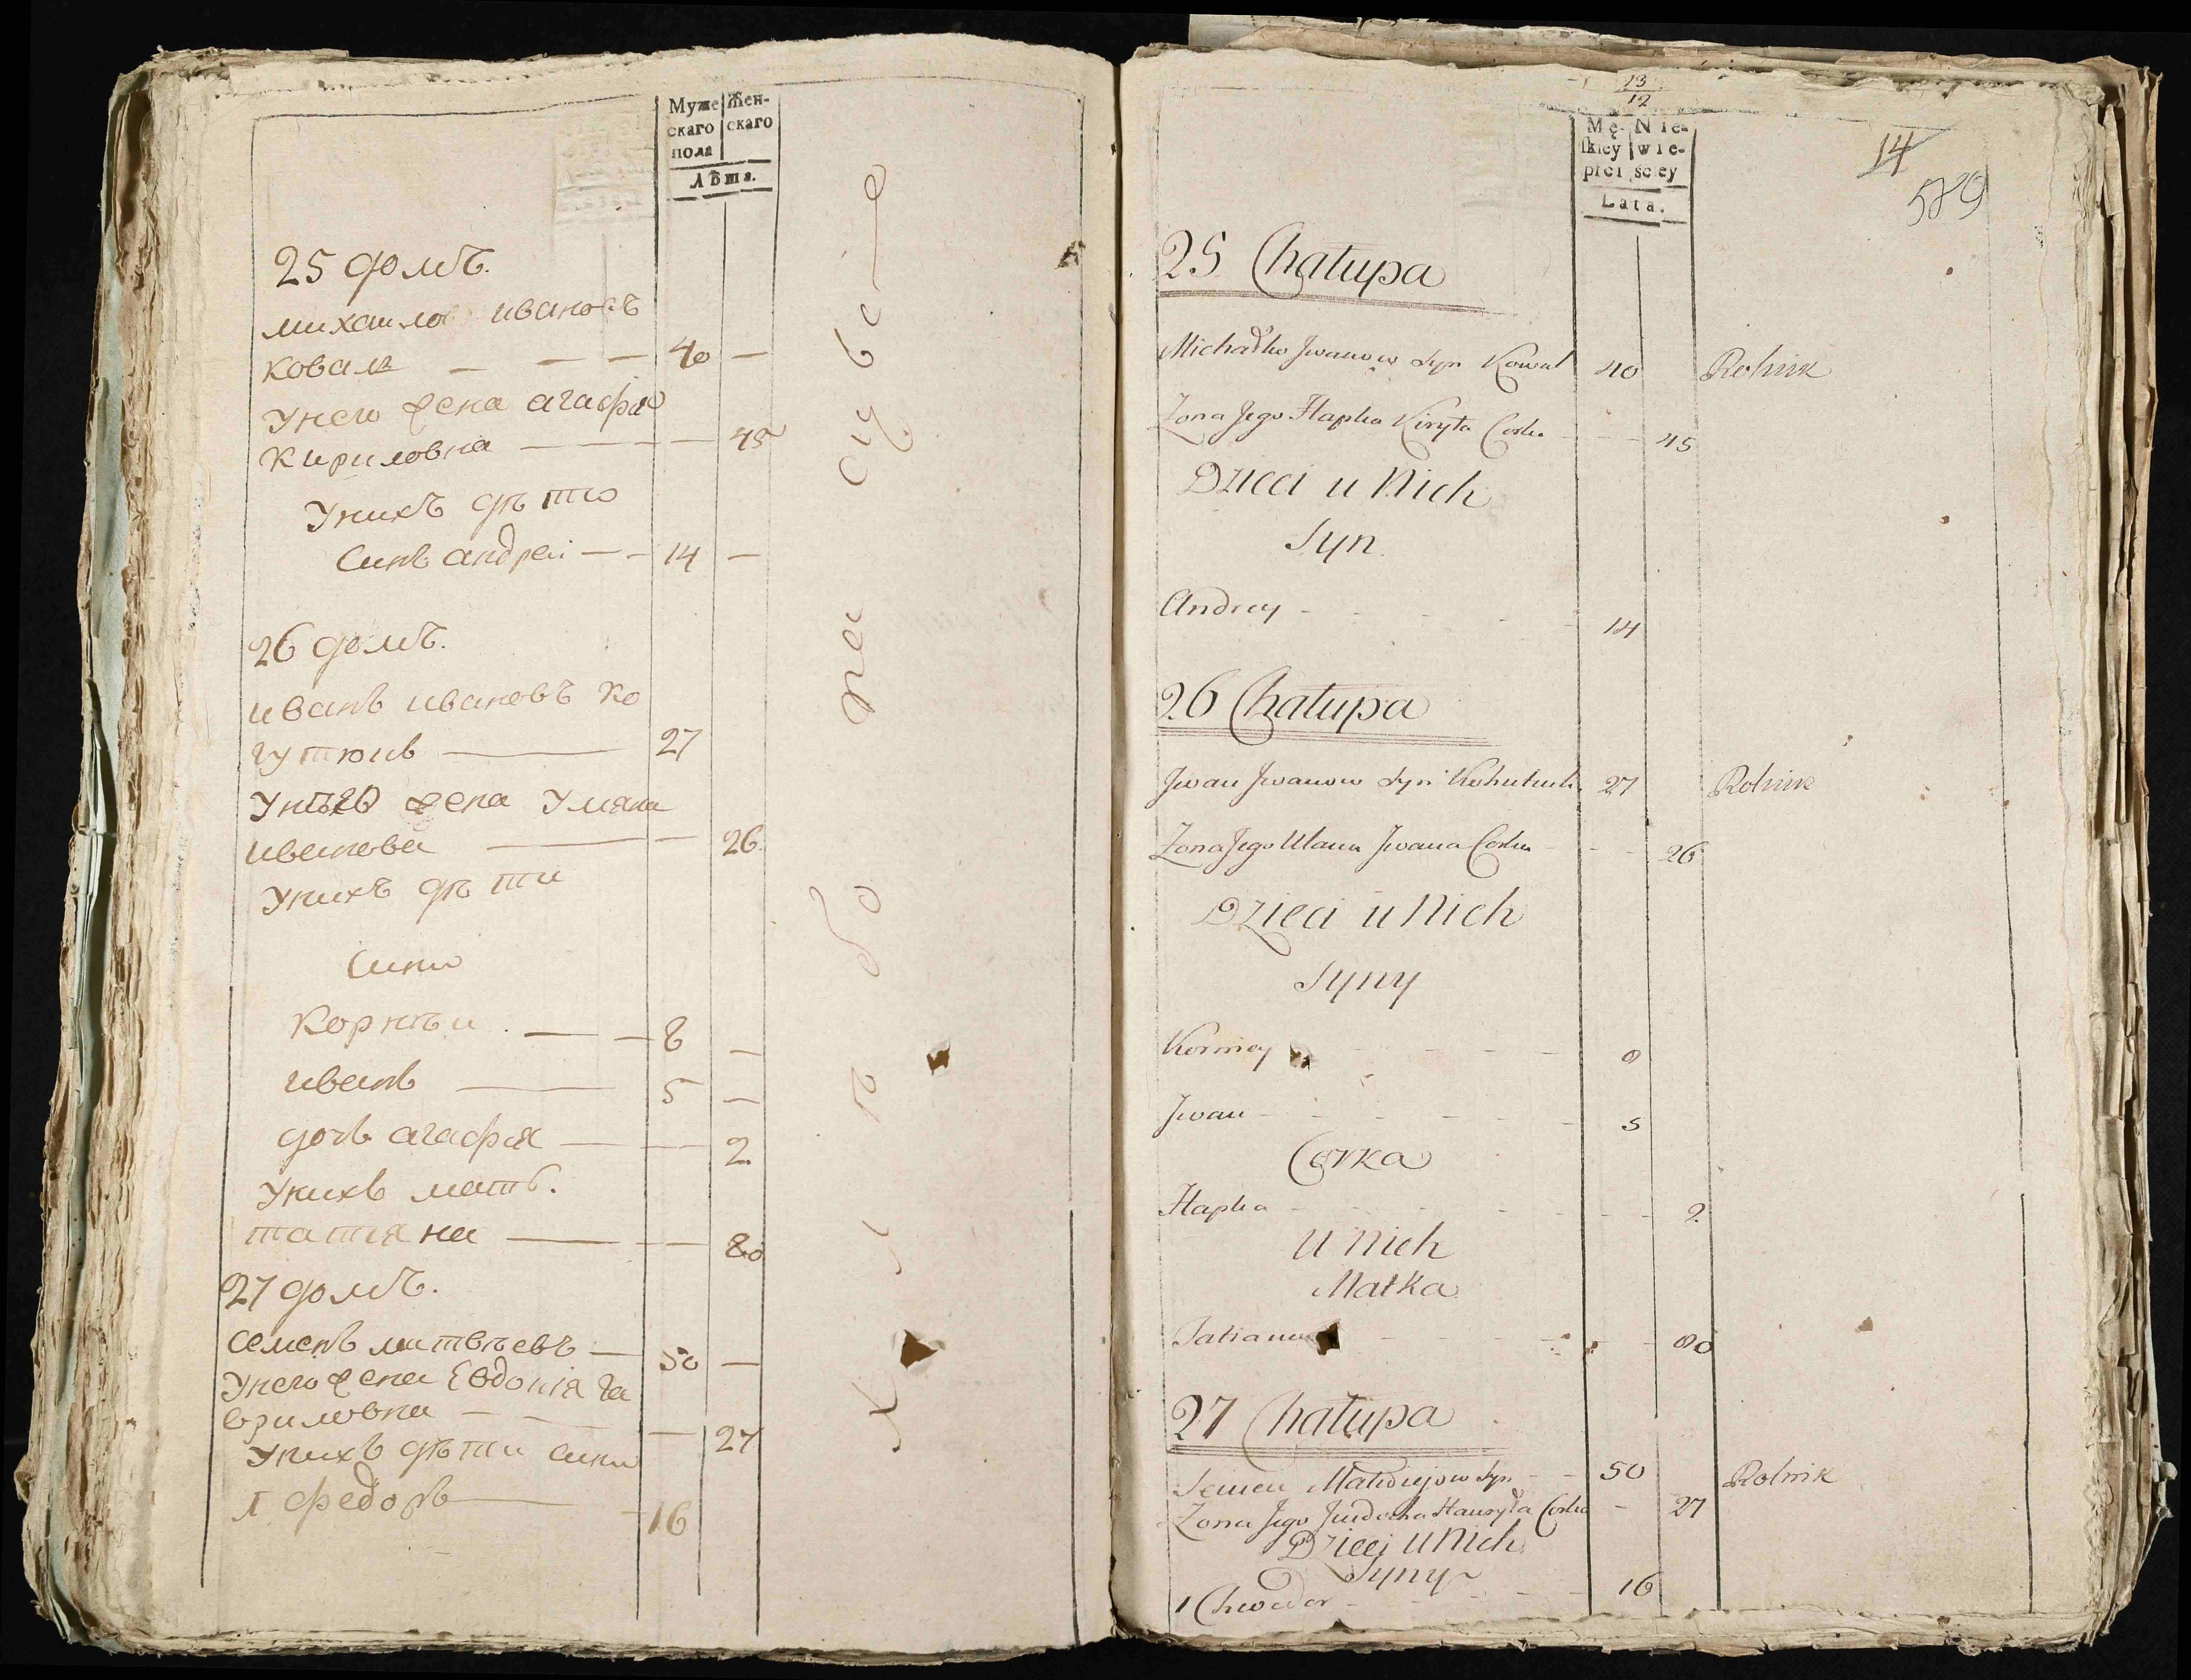 Муже Жен-
скаго скаго
пола
Лѣта.
25 домъ.
михаило ивановъ
коваль — — — 40 —
Унего жена агафия
Кириловна — — — 45
Унихъ дѣти
Синъ андрей — — 14 —
26 домъ.
иванъ ивановъ ко
гутюкъ — 27
Унего жена Уляна
иванова — — 26
Унихъ дѣти
Сини
Корнѣи — — 8 —
иванъ — 5 —
дочь агафія — — 2
Унихъ мать.
татіяна — — 80
27 домъ.
семенъ матвѣевъ — 50 —
Унего жена Евдокія га
вриловна — — — 27
Унихъ дѣти сини
1 федоръ — — 16
хлѣбо
13
12
Mę- Nie-
skiey wie-
płci ściey
Lata.
14
589
25 Chałupa
Michałko Jwanow Syn Kowal 40 Rolnik
Zona Jego Hapka Kiryła Corka - - - 45
Dzieci u Nich
Syn
Andrey - - - - - 14
26 Chałupa
Jwan Jwanow Syn Kohutiuk 27 Rolnik
Zona Jego Ulana Jwana Corka - - - 26
Dzieci u Nich
Syny
Korniey - - - - 8
Jwan - - - - - 5
Corka
Hapka - - - - - - 2
U Nich
Matka
Tatianna - - - - - 80
27 Chałupa
Semen Matwiejow Syn - - 50 Rolnik
Zona Jego Jewdocha Hawryła Corka - 27
Dzieci u Nich
Syny
1 Chwedor - - - - 16